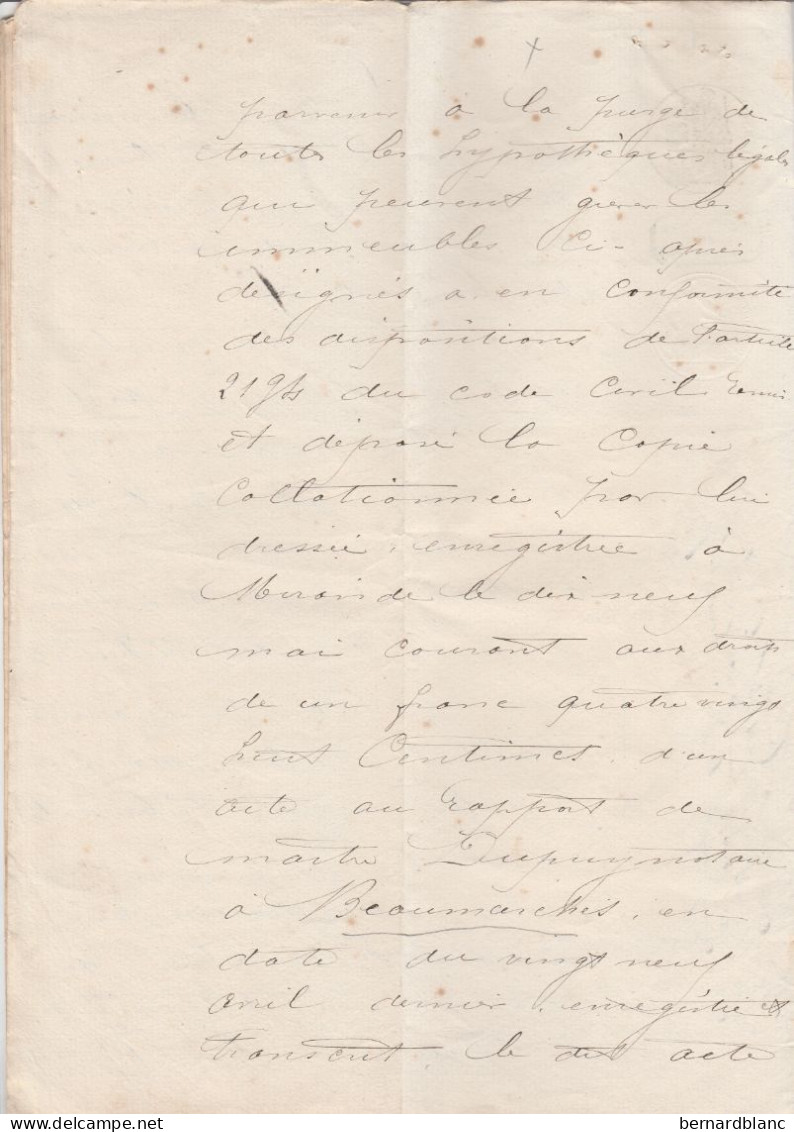 parvenir a la purge de
toutes les hypothèques légales
qui peuvent grever les
immeubles ci-après
designés a en conformité
des dispositions de l'article
2194 du code Civil remis
et déposé la Copie
Collationnée par lui
dressée, enregistrée à
Mirande le dix neuf
mai courant aux droits
de un franc quatre vingt
huit Centimes, d'un
acte au rapport de
maitre Dupuy notaire
à Beaumarchés, en
date du vingt neuf
avril dernier, enregistré et
transcrit, le dit acte
bernardblanc